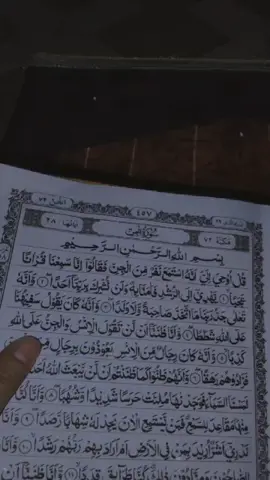 الجن ٧٢ ٤٥٧ تبارك الذى ٢٩
اياتها ٢٨ سُوْرَةُ الْجِنِّ مَكِّيَّة ٧٢
بِسْمِ اللّٰهِ الرَّحْمٰنِ الرَّحِيْمِ
قُلْ اُوْحِيَ اِلَيَّ اَنَّهُ اسْتَمَعَ نَفَرٌ مِّنَ الْجِنِّ فَقَالُوْٓا اِنَّا سَمِعْنَا قُرْاٰنًا
عَجَبًا ۝١ يَّهْدِيْٓ اِلَى الرُّشْدِ فَاٰمَنَّا بِهٖ وَلَنْ نُّشْرِكَ بِرَبِّنَآ اَحَدًا ۝٢ وَّاَنَّهٗ
تَعٰلٰى جَدُّ رَبِّنَا مَا اتَّخَذَ صَاحِبَةً وَّلَا وَلَدًا ۝٣ وَّاَنَّهٗ كَانَ يَقُوْلُ سَفِيْهُنَا
عَلَى اللّٰهِ شَطَطًا ۝٤ وَّاَنَّا ظَنَنَّآ اَنْ لَّنْ تَقُوْلَ الْاِنْسُ وَالْجِنُّ عَلَى اللّٰهِ
كَذِبًا ۝٥ وَّاَنَّهٗ كَانَ رِجَالٌ مِّنَ الْاِنْسِ يَعُوْذُوْنَ بِرِجَالٍ مِّنَ
فَزَادُوْهُمْ رَهَقًا ۝٦ وَّاَنَّهُمْ ظَنُّوْا كَمَا ظَنَنْتُمْ اَنْ لَّنْ يَّبْعَثَ اللّٰهُ اَحَدًا
لَمَسْنَا السَّمَآءَ فَوَجَدْنٰهَا مُلِئَتْ حَرَسًا شَدِيْدًا وَّشُهُبًا ۝٨ وَّاَنَّا كُنَّا
مِنْهَا مَقَاعِدَ لِلسَّمْعِ فَمَنْ يَّسْتَمِعِ الْاٰنَ يَجِدْ لَهٗ شِهَابًا رَّصَدًا ۝٩ وَّاَنَّا
نَدْرِيْٓ اَشَرٌّ اُرِيْدَ بِمَنْ فِى الْاَرْضِ اَمْ اَرَادَ بِهِمْ رَبُّهُمْ رَشَدًا ۝١٠ وَّاَنَّا